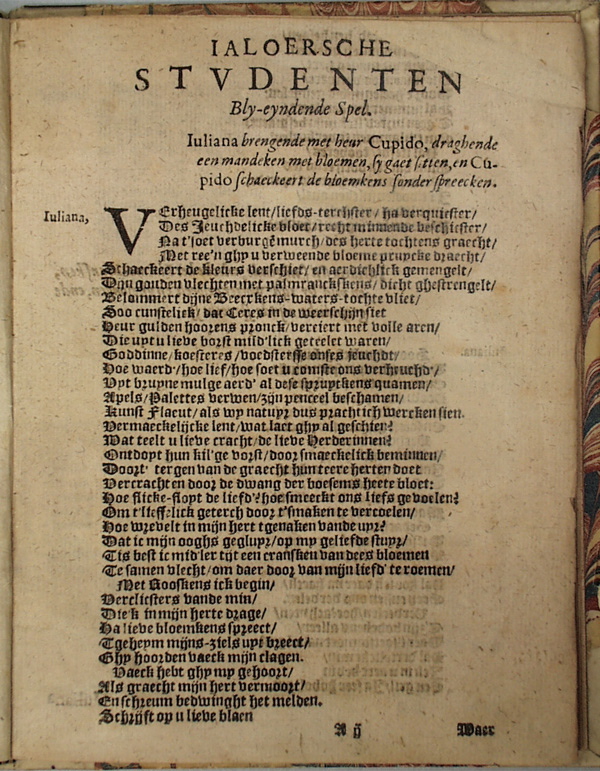 IALOERSCHE
STVDENTEN
Bly-eyndende Spel.
Iuliana brengende met heur Cupido, draghende
een mandeken met bloemen, sy gaet sitten, en Cu-
pido schaeckeert de bloemkens sonder spreecken.
Iuliana,
VErheugelicke lent/liefds-terchster/ ha verquicster/
Des Jeuchdelicke bloet/recht minnende beschicster/
Na t'soet verburgē murch/des herte tochtens graecht/
Met ree'n ghy u verweende bloeme pruycke draecht/
Schaeckeert de kleurs verschiet/en aerdichlick gemengelt/
Dyn gouden vlechten met palmranckskens/dicht ghestrengelt/
Belommert dijne Beeckkens-waters-tochte vliet/
Soo cunstelick/dat Ceres in de weerschijn siet
Heur gulden hoorens pronck/verciert met volle aren/
Die uyt u lieve borst mild'lick geteelet waren/
Goddinne/koesteres/voedsterse onses jeuchdt/
Hoe waerd'/hoe lief/hoe soet u comste ons verhruchd'/
Uyt bruyne mulge aerd' al dese spruytkens quamen/
Apels/Palettes verwen/zijn penceel beschamen/
Kunst flacut/als wy natuyr dus pracht ich wercken sien.
Vermaeckelijcke lent/wat laet ghy al geschien?
Wat teelt u lieve cracht/de lieve Herderinnen?
Ontdoyt hun kil'ge vorst/door smaeckelick beminnen/
Door t' tergen van de graecht hun teere herten doet
Vercrachten door de dwang der boesems heete bloet:
Hoe flicke-floyt de liefd'? hoe smeerkt ons liefs gevoelen?
Om t'lieffelick geterch door t'smaken te vertoelen/
Hoe wrevelt in mijn hert t'genaken vande uyr?
Dat ic mijn ooghs gegluyr/op my geliefde stuyr/
Tis best ic mid'ler tijt een cransken van dees bloemen
Te samen vlecht/om daer door van mijn liefd' te roemen/
Met Rooskens ick begin/
Verclicsters vande min/
Die k in mijn herte drage/
Ha lieve bloemkens spreect/
Tgeheym mijns-ziels uyt breect/
Ghy hoorden vaeck mijn clagen.
Vaeck hebt ghy my gehoort/
Als graecht mijn hert vermoort/
En schreum bedwinght het melden.
Schrijft op u lieve blaen
A ij
Waer